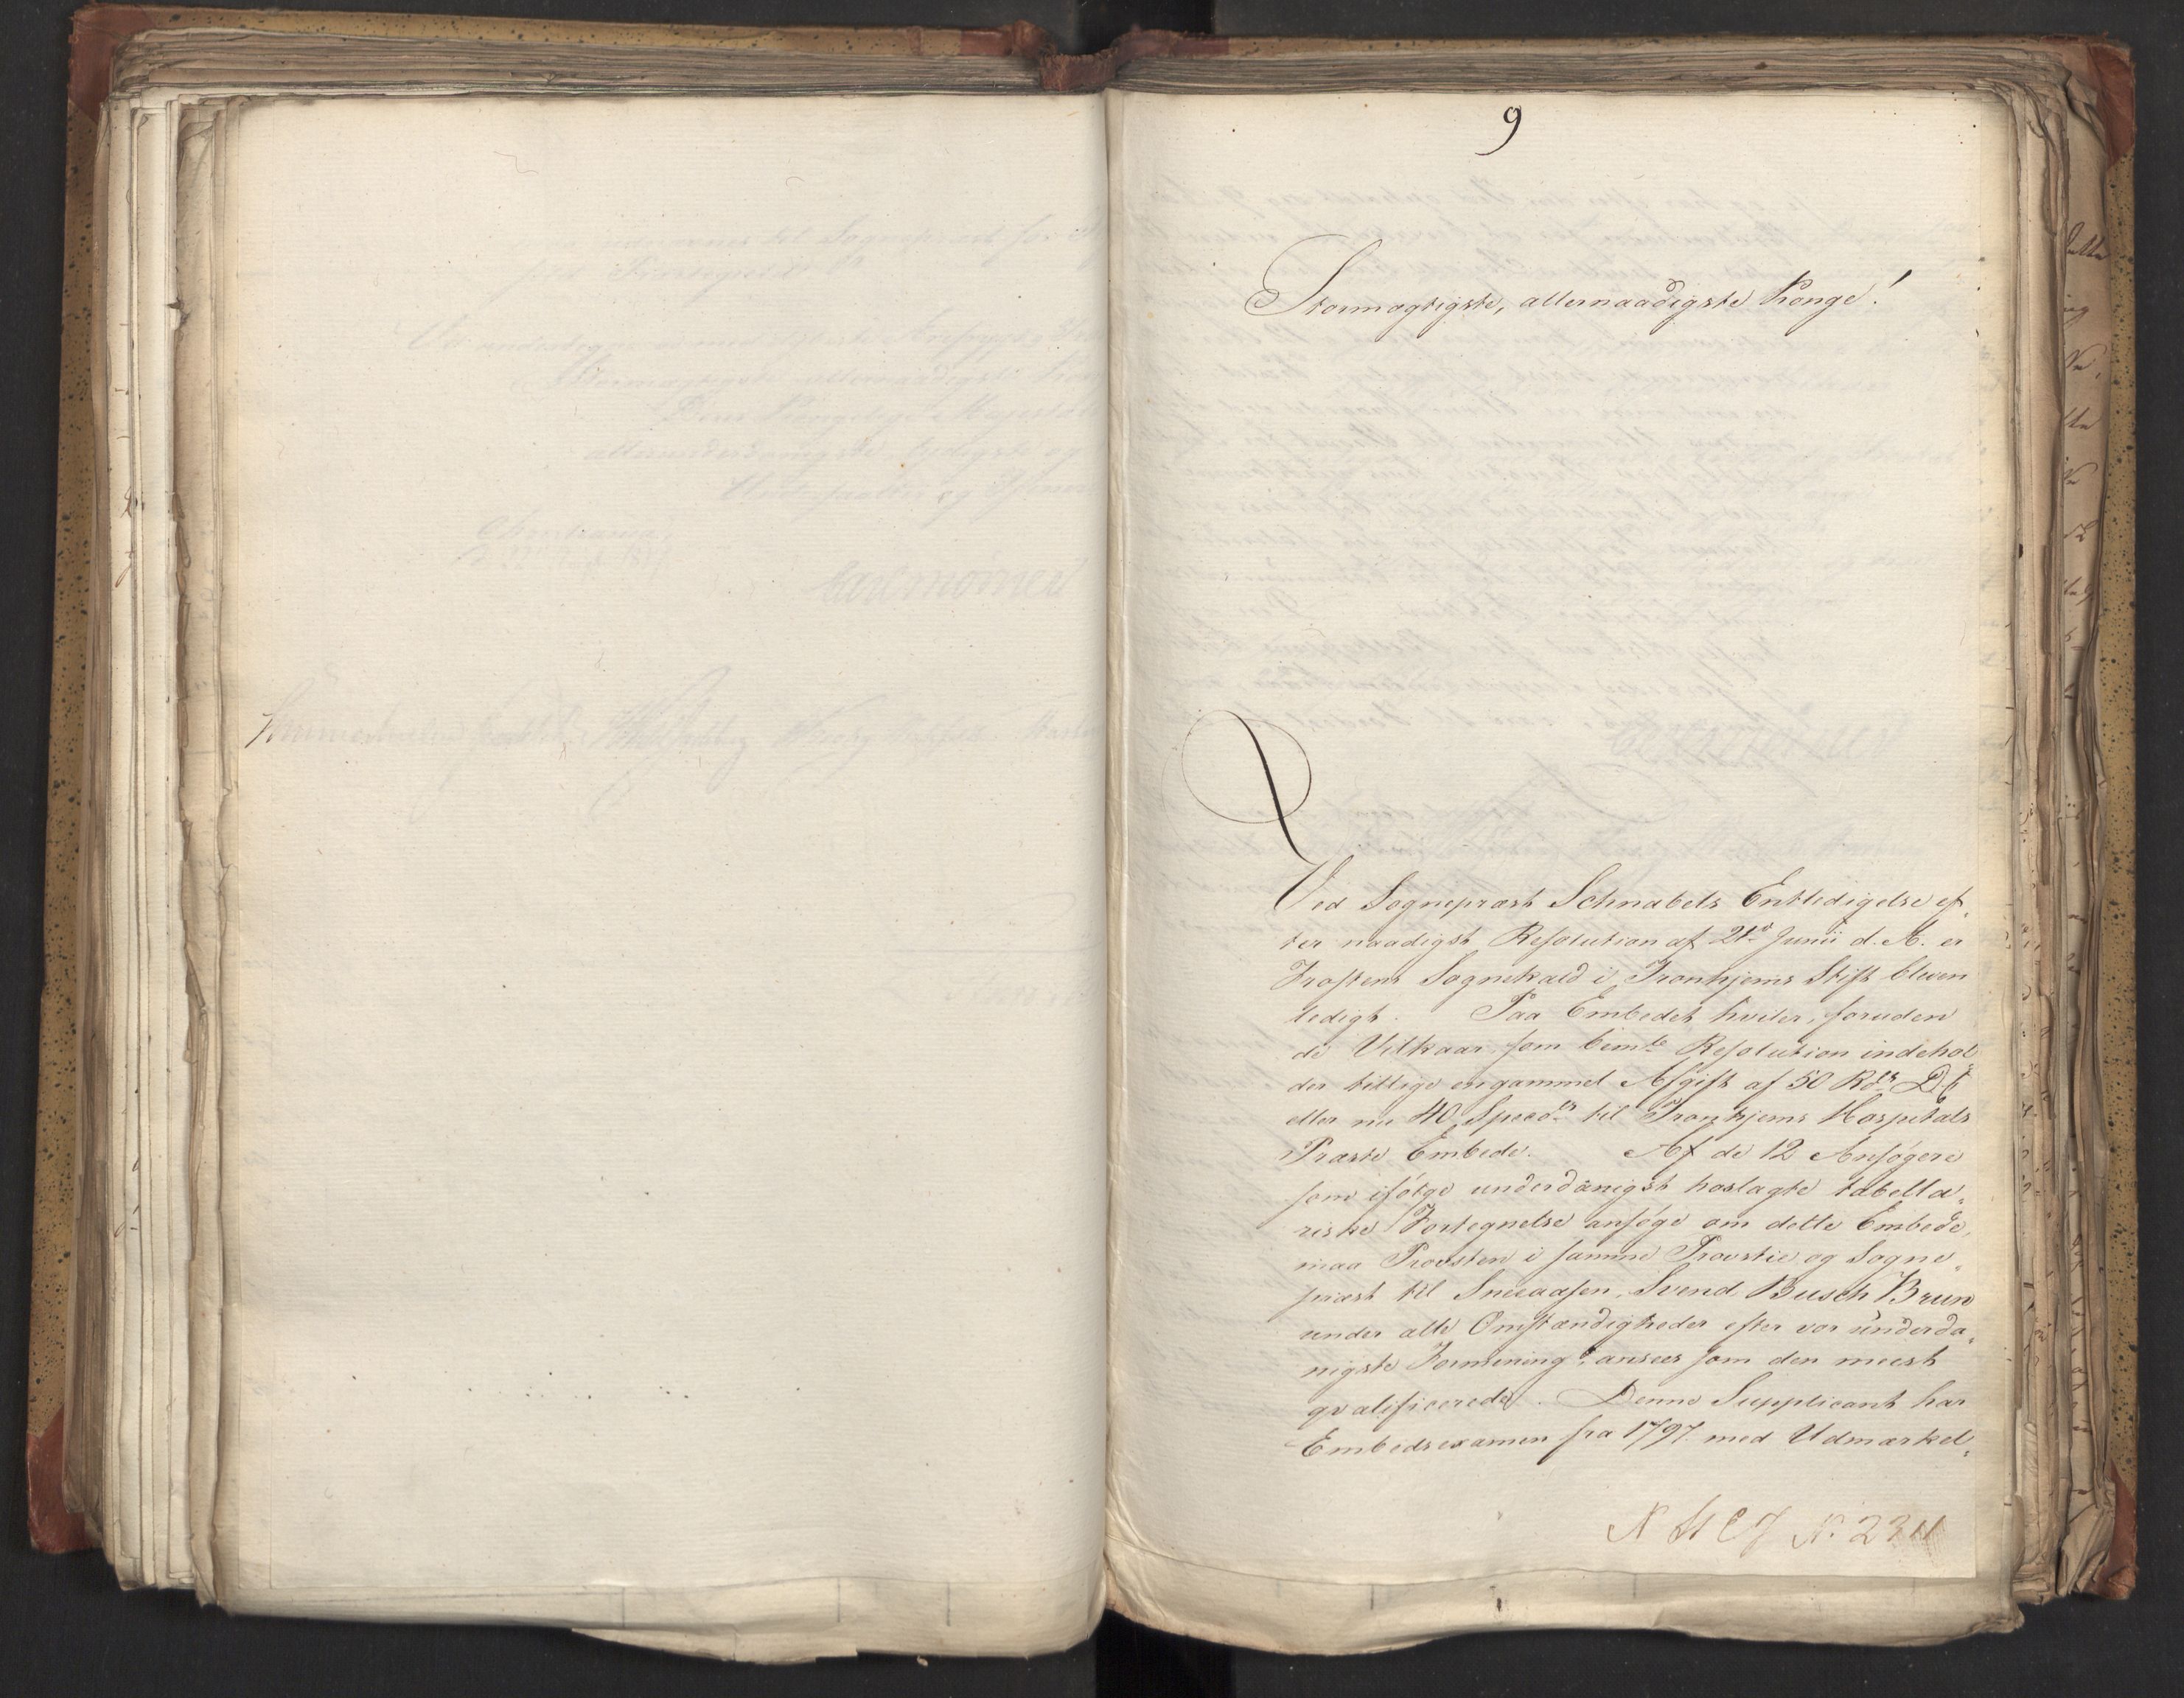 9
Stormægtigste, allernaadigste Konge!
Ved Sognepræst Schnabels Entledigelse ef¸
ter naadigst Resolution af 21de Junii d. A. er
Frostens Sognekald i Tronhjems Stift bleven
ledigt. Paa Embedet hviler, foruden
de Vilkaar som bemte Resolution indehol
der tillige en gammel Afgift af 50 Rdlr D. C.
eller nu 40 Specdlr til Tronhjems Hospitals
Præste Embede. Af de 12 Ansøgere
som ifølge underdanigst hoslagte tabella¸
riske Fortegnelse ansøge om dette Embede,
maa Provsten i samme Provstie og Sogne¸
præst til Sneaasen, Svend Busch Brun
under alle Omstændigheder efter vor underda¸
nigste Formening, ansees som den meest
qvalificerede. Denne Supplicant har
Embedsexamen fra 1797 med Udmærkel¸